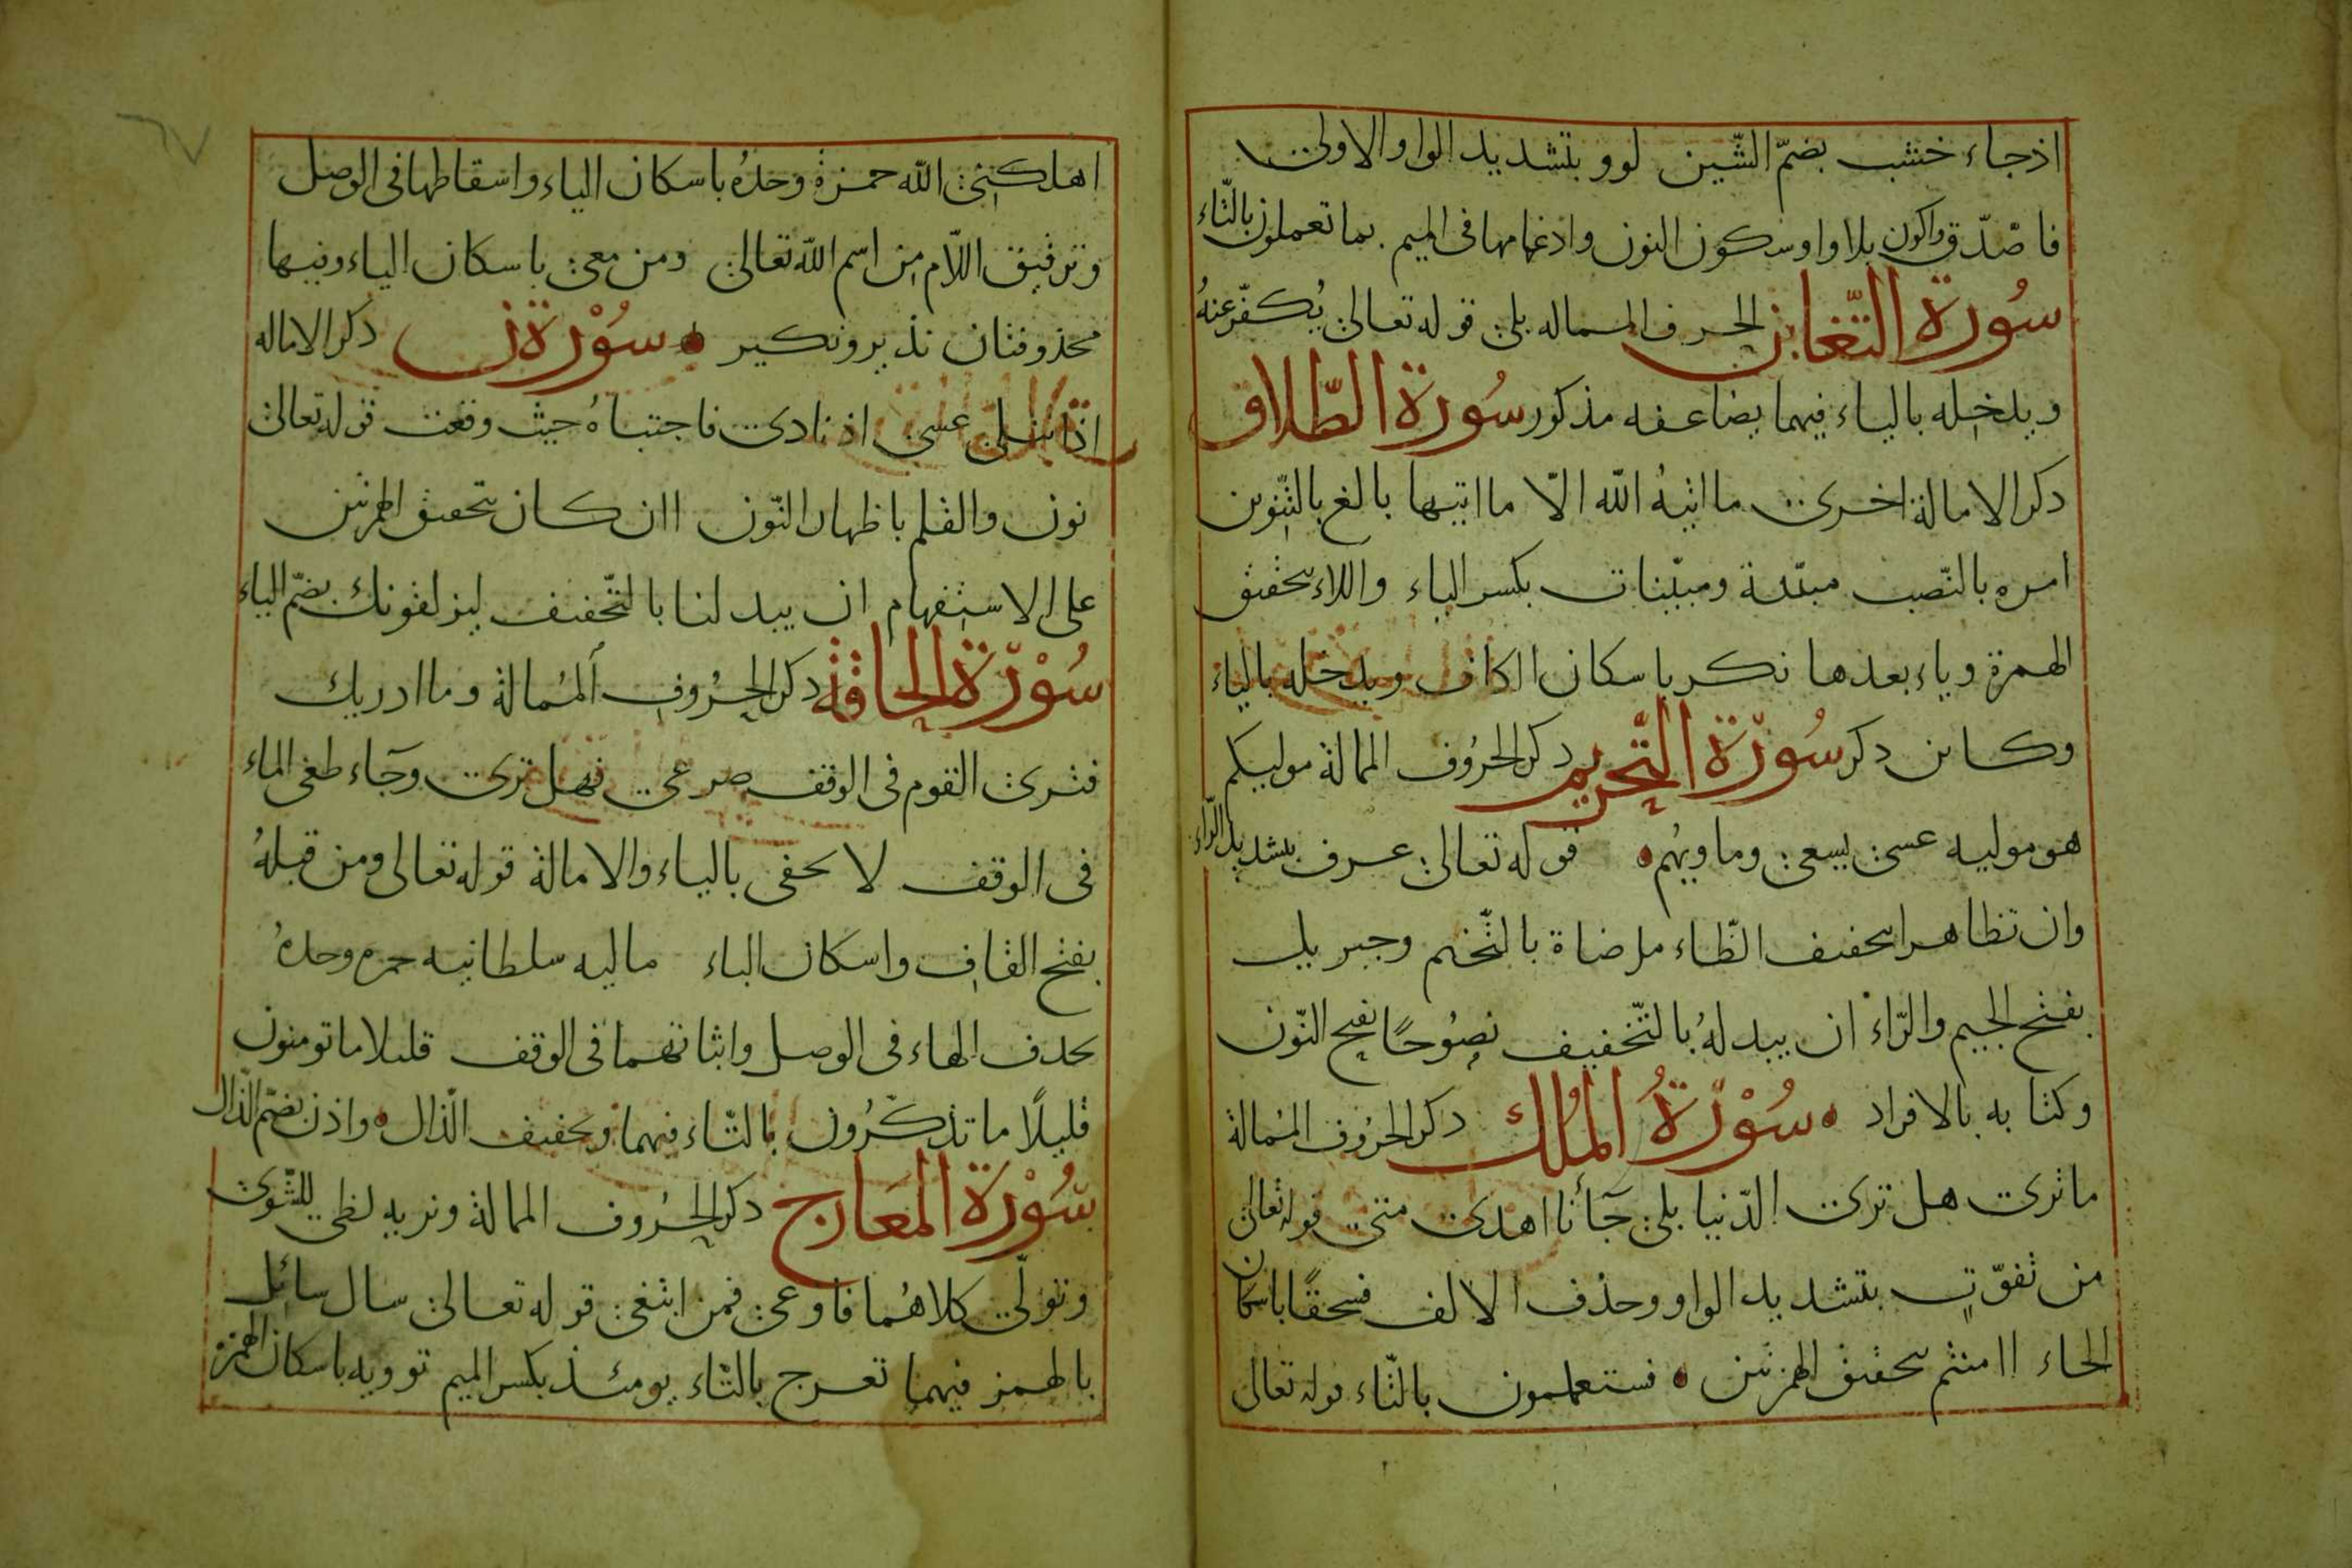 اذ جاء خشب بضمّ الشّين لووا بتشديد الواو الاولى
فاصّدّق واكون بلا واو وسكون النون وادغامها فى الميم بما تعملون بالتّاء
سُورة التّغابن الحروف الممالة بلى قوله تعالى يُكفّر عنهُ
ويدخله بالياء فيهما يضاعفه مذكور سُورة الطّلاق
ذكر الامالة اخرى ما اتيهُ الله الّا ما اتيها بالغ بالتّنوين
امره بالنّصب مبيّنة ومبيّنات بكسر الياء واللاء بتحقيق
الهمزة وياء بعدها نكرا باسكان الكاف ويدخله بالياء
وكاين ذكر سُورة التّحريم ذكر الحرُوف الممالة موليكم
هو موليه عسى يسعى وماويهُم قوله تعالى عرف بتشديد الرّاء
وان تظاهرا بتخفيف الظّاء مرضاة بالتّفخيم وجبريل
بفتح الجيم والرّاء ان يبدلهُ بالتّخفيف نصُوحًا بفتح النّون
وكتابه بالافراد سُوْرَةُ الْمُلك ذكر الحرُوف المُمالة
ما ترى هل ترى الدّنيا بلى جآءنا اهدى متى قوله تعالى
من تفوّتٍ بتشديد الواو وحذف الالف فسحقًا باسكان
الحاء اامنتم بتحقيق الهمزتين فستعلمون بالتّاء قوله تعالى
اهلكنى الله حمزة وحدهُ باسكان الياء واسقاطها فى الوصل
وترقيق اللّام من اسم الله تعالى ومن معى باسكان الياء وفيها
محذوفتان نذير ونكير سُوْرَة نٓ ذكر الامالة
اذا تتلى عسى اذ نادى فاجتباهُ حيث وقعت قوله تعالى
نون والقلم باظهار النّون اان كان بتحقيق الهمزتين
على الاستفهام ان يبدلنا بالتّخفيف ليزلقونك بضمّ الياء
سُوْرَة الحاقّة ذكر الحرُوف المُمالة وما ادريك
فترى القوم فى الوقف صرعى فهل ترى وجآء طغى الماء
فى الوقف لا يخفى بالياء والامالة قوله تعالى ومن قبلهُ
بفتح القاف واسكان الباء ماليه سلطانيه حمزه وحدهُ
بحذف الهاء فى الوصل واثباتهما فى الوقف قليلا ما تومنون
قليلًا ما تذكّرُون بالتّاء فيهما وبتخفيف الذّال واذن بضمّ الذّال
سُوْرَة المَعارج ذكر الحرُوف الممالة ونريه لظى للشّوى
وتولّى كلاهُما فاوعى فمن ابتغى قوله تعالى سال سائل
بالهمز فيهما تعرج بالتّاء يومئذ بكسر الميم توويه باسكان الهمز